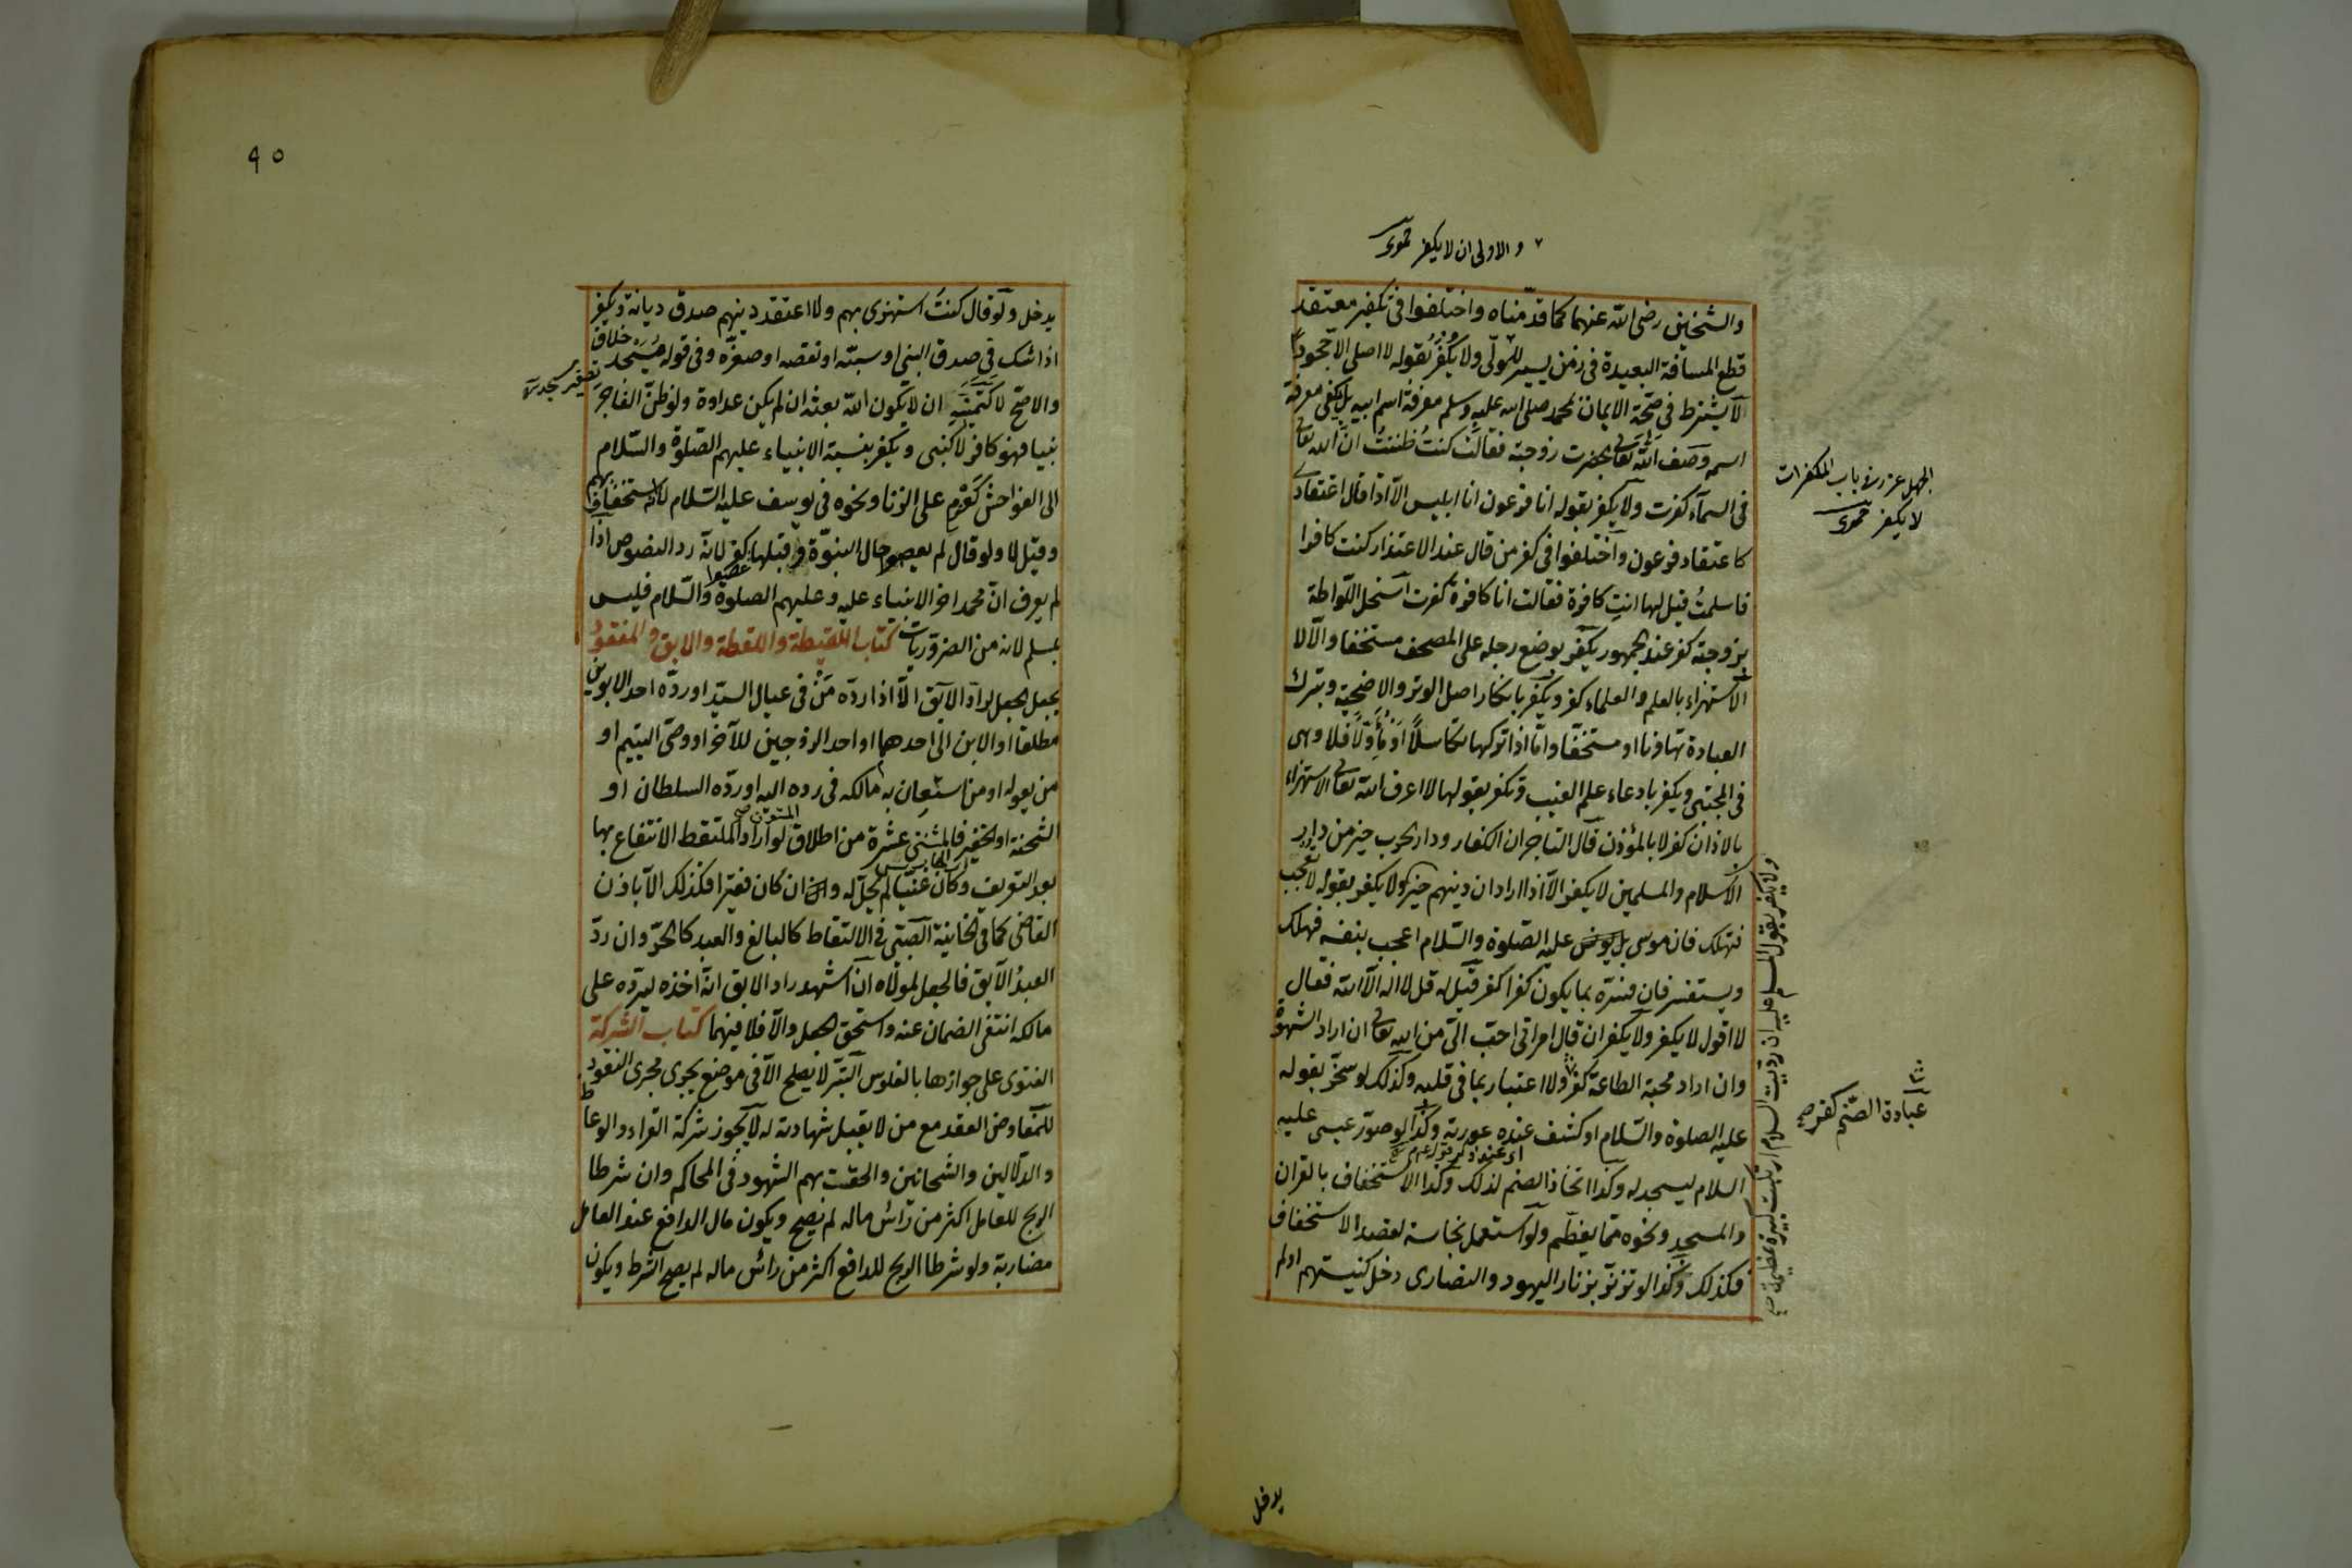 والاولى ان لا يكفر حموى
والشيخين رضى الله عنهما كما قدمناه واختلفوا فى تكفير معتقد
قطع المسافة البعيدة فى زمن يسير للولى ولا يكفر بقوله لا اصلى الا جحودا
لا يشترط فى صحة الايمان بمحمد صلى الله عليه وسلم معرفة اسم ابيه بل يكفى معرفة
اسمه وصف الله تعالى بحضرت زوجته فقالت كنت ظننت ان الله تعالى
فى السمآء كفرت ولا يكفر بقوله انا فرعون انا ابليس الا اذا قال اعتقادى
كاعتقاد فرعون واختلفوا فى كفر من قال عند الاعتذار كنت كافرا
فاسلمت قيل لها انت كافرة فقالت انا كافرة كفرت استحل اللواطة
بزوجته كفر عند الجمهور يكفر بوضع رجله على المصحف مستخفا والا لا
الاستهزاء بالعلم والعلماء كفر ويكفر بانكار اصل الوتر والاضحية وبترك
العبادة تهاونا او مستخفا واما اذا تركها تكاسلا او مأولا فلا وهى
فى المجتبى ويكفر بادعاء علم الغيب وتكفر بقولها لا اعرف الله تعالى الاستهزاء
بالاذان كفر لا بالمؤذن قال التاجر ان الكفار ودار الحرب خير من دار
الاسلام والمسلمين لا يكفر الا اذا اراد ان دينهم خير ولا يكفر بقوله لا تعجب
فتهلك فان موسى عليه الصلوة والسلام اعجب بنفسه فهلك
ويستفسر فان فسره بما يكون كفرا كفر قيل له قل لا اله الا الله فقال
لا اقول لا يكفر ولا يكفر ان قال امراتى احب الى من الله تعالى ان اراد الشهوة
وان اراد محبة الطاعة كفر ولا اعتبار بما فى قلبه وكذلك لو سخر بقوله
عليه الصلوة والسلام او كشف عنده عورته وكذا لو صور عيسى عليه
السلام ليسجد له وكذا اتخاذ الصنم لذلك وكذا الاستخفاف بالقران
والمسجد ونحوه مما يعظم ولو استعمل نجاسة لقصد الاستخفاف
فكذلك وكذا لو تزنر بزنار اليهود والنصارى دخل كنيستهم او لم
الجهل عذر فى باب المكفرات
لا يكفر حموى
عبادة الصنم كفر صح
يدخل
٩٠
يدخل ولو قال كنت استهزئ بهم ولا اعتقد دينهم صدق ديانة ويكفر
اذا شك فى صدق النبى او سبه او نقصه او صغره وفى قوله مسيجد خلاف
تصغير مسجد
والاصح لا كتمنيه ان لا يكون الله بعثه ان لم يكن عداوة ولو ظن الفاجر
نبيا فهو كافر لا كنبى ويكفر بنسبة الانبياء عليهم الصلوة والسلام
الى الفواحش كعزم على الزنا ونحوه فى يوسف عليه السلام لانه استخفاف بهم
وقيل لا ولو قال لم يعصوا حال النبوة وقبلها كفر لانه رد النصوص اذا
لم يعرف ان محمدا اخر الانبياء عليه وعليهم الصلوة والسلام فليس
بمسلم لانه من الضروريات كتاب اللقيطة واللقطة والابق والمفقود
يجعل الجعل لراد الآبق الا اذا رده من فى عيال السيد او رده احد الابوين
مطلقا او الابن الى احدهما او احد الزوجين للآخر او وصى اليتيم او
من يعوله او من استعان به مالكه فى رده اليه او رده السلطان او
الشحنة او الخفير فالمستثنى عشرة من اطلاق المتون لو اراد الملتقط الانتفاع بها
بعد التعريف وكان غنيا لم يحل له وان كان فقيرا فكذلك الا باذن
القاضى كما فى الخانية الصبى فى الالتقاط كالبالغ والعبد كالحر وان رد
العبد الآبق فالجعل لمولاه ان اشهد راد الابق انه اخذه ليرده على
مالكه انتفى الضمان عنه واستحق الجعل والا فلا فيهما كتاب الشركة
الفتوى على جوازها بالفلوس التبر لا يصلح الا فى موضع يجرى مجرى النقود
للمفاوض العقد مع من لا تقبل شهادته له لا يجوز شركة القراء والوعاظ
والدلالين والشحاذين والحقت بهم الشهود فى المحاكم وان شرطا
الربح للعامل اكثر من رأس ماله لم يصح ويكون مال الدافع عند العامل
مضاربة ولو شرطا الربح للدافع اكثر من رأس ماله لم يصح الشرط ويكون